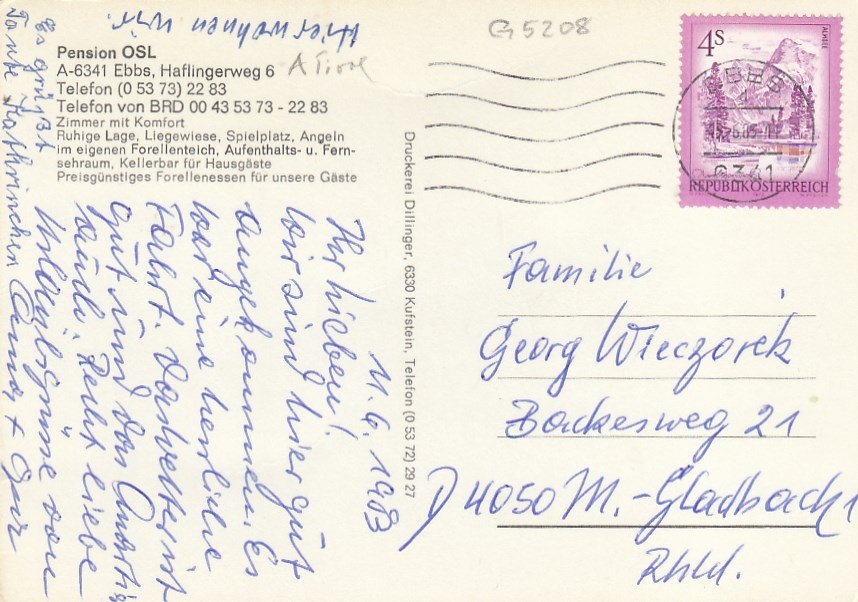 Hier wohnen wir.
Pension OSL
A-6341 Ebbs, Haflingerweg 6
Telefon (0 53 73) 22 83
Telefon von BRD 00 43 53 73 - 22 83
Zimmer mit Komfort
Ruhige Lage, Liegewiese, Spielplatz, Angeln
im eigenen Forellenteich, Aufenthalts- u. Fern-
sehraum, Kellerbar für Hausgäste
Preisgünstiges Forellenessen für unsere Gäste
A Tirol
G 5208
4S
ALMSEE
REPUBLIK ÖSTERREICH
EBBS
6341
Druckerei Dillinger, 6330 Kufstein, Telefon (0 53 72) 29 27
11.6.1983
Ihr Lieben!
Wir sind hier gut
angekommen. Es
war eine herrliche
Fahrt. Das Wetter ist
gut und das Quartier
auch. Recht liebe
Urlaubsgrüße von
Oma + Opa
Es grüßt
Tante Kathrinchen
Familie
Georg Wieczorek
Backesweg 21
D 4050 M.-Gladbach 1
Rhld.